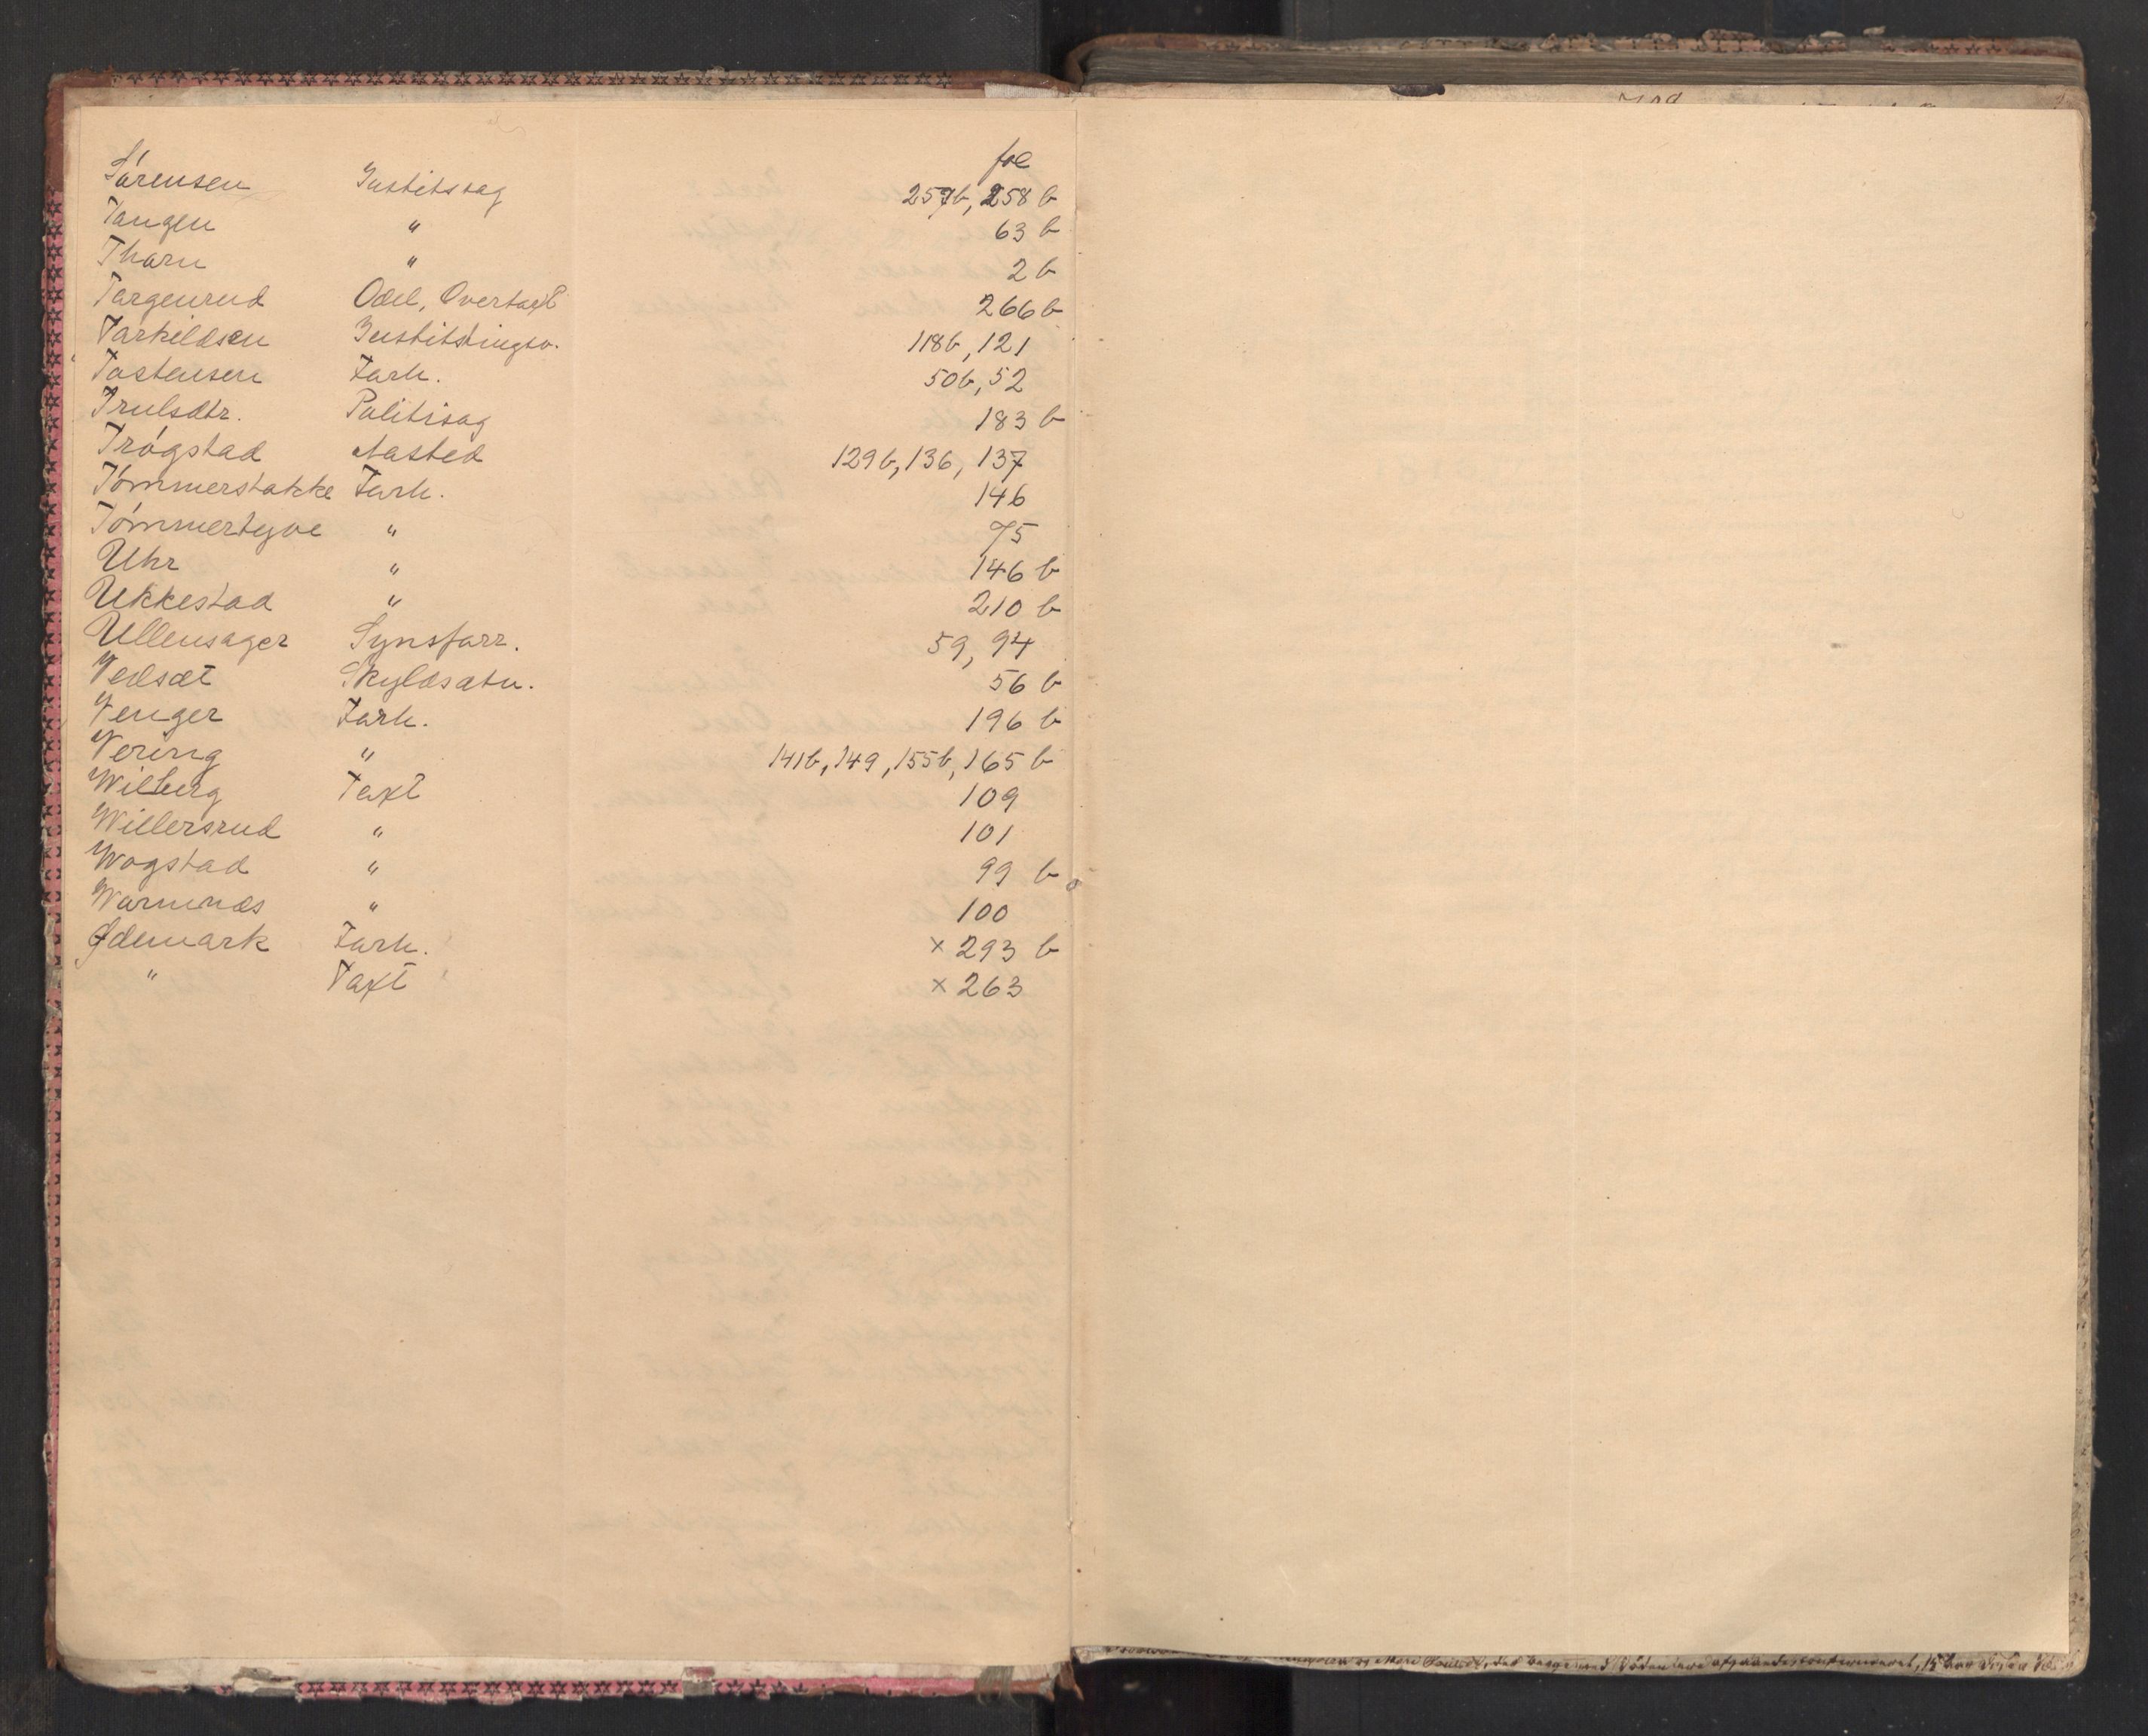 fol
Sørensen Justitssag 257b, 258 b
Tangen " 63 b
Thorn " 2 b
Torgenrud Odel, Overtaxt 266 b
Torkildsen Justitstingsv. 118b, 121
Tostensen Forh. 50b, 52
Trulsdtr. Politisag 183 b
Trøgstad Aasted 129b, 136, 137
Tømmerstokke Forh. 146
Tømmertyve " 75
Uhr " 146 b
Ukkestad " 210 b
Ullensager Synsforr. 59, 94
Vedsæt Skyldsætn. 56 b
Venger Forh. 196 b
Vering " 141b, 149, 155b, 165 b
Wilberg Taxt 109
Willersrud " 101
Wogstad " 99 b
Warnæs " 100
Ødemark Forh. x 293 b
" Taxt x 263